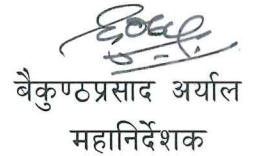 बैकुण्ठप्रसाद अर्याल
महानिर्देशक